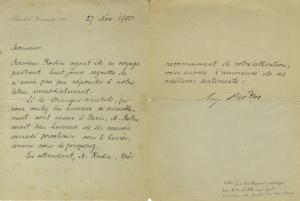 27 Nov. 1905
Monsieur,
Monsieur Rodin ayant été en voyage
pendant huit jours regrette de
n'avoir pas pu répondre à votre
lettre immédiatement.
Si le
vous voulez lui amener si aimable-
ment sont encore à Paris, M. Rodin
serait bien heureux de les recevoir
samedi prochain vers 2 heures,
comme vous le proposez.
En attendant, M. Rodin, très
reconnaissant de votre attention,
vous envoie l'assurance de ses
meilleurs sentiments.
Aug. Rodin